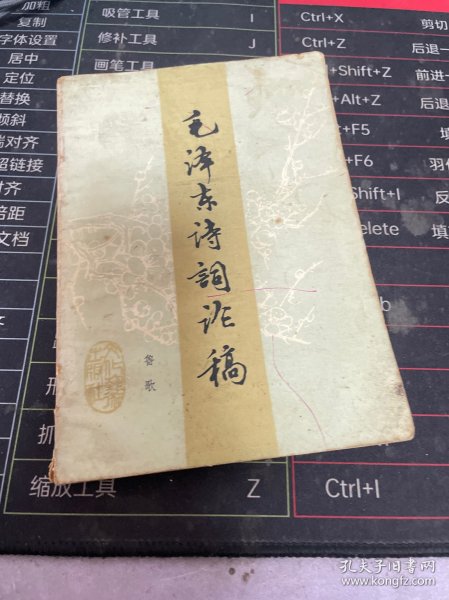 加粗
复制
字体设置
居中
定位
替换
倾斜
端对齐
超链接
对齐
倍距
文档
吸管工具 I
修补工具 J
画笔工具
缩放工具 Z
Ctrl+X 剪切
Ctrl+Z 后退一
Shift+Z 前进一
Alt+Z 后退
+F5 填
+F6 羽化
Shift+I 反
elete 填
Ctrl+I
毛泽东诗词论稿
鲁歌
孔夫子旧书网
www.kongfz.com